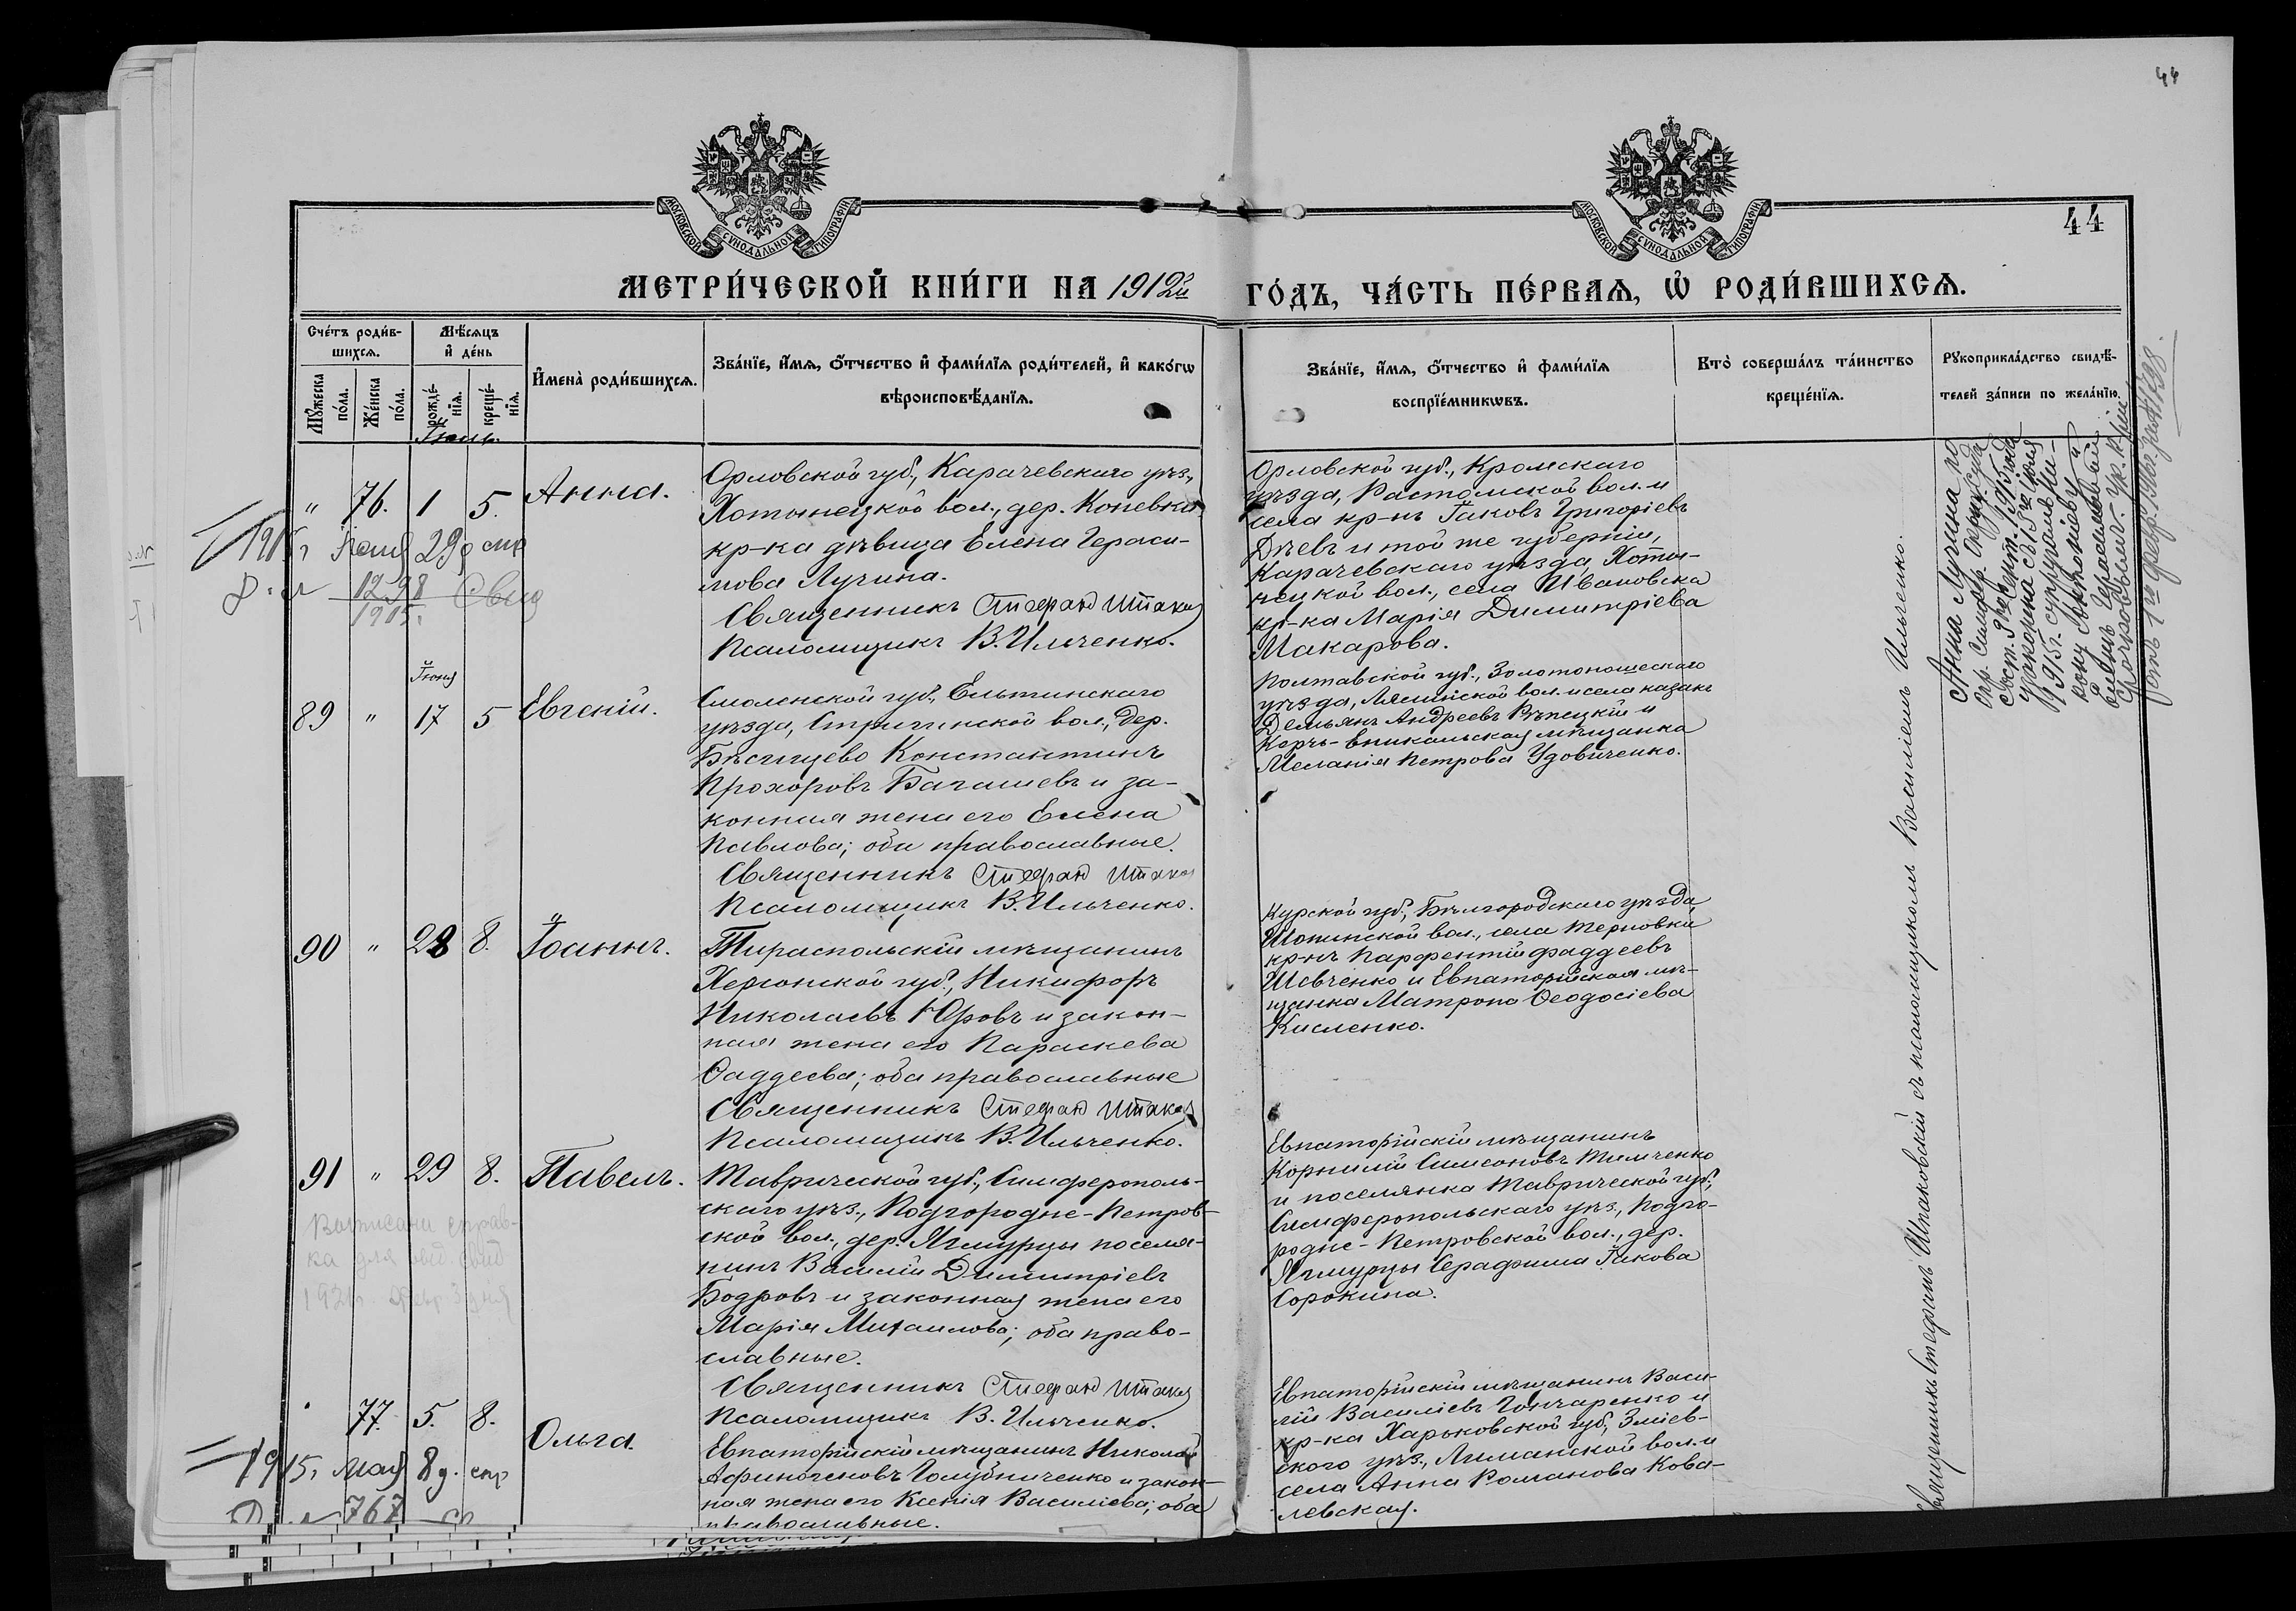 44
МОСКОВСКОЙ СѴНОДАЛЬНОЙ ТИПОГРАФІИ
МОСКОВСКОЙ СѴНОДАЛЬНОЙ ТИПОГРАФІИ
44
МЕТРИ́ЧЕСКОЙ КНИ́ГИ НА 1912й
ГО́ДЪ, ЧА́СТЬ ПЕ́РВАѦ, Ѡ҆ РОДИ́ВШИХСѦ.
Сче́тъ роди́в-
шихсѧ.
Мꙋ́жеска по́ла.
Же́нска по́ла.
Мѣ́сѧцъ и҆ де́нь
рожде́-нїѧ.
креще́-нїѧ.
И҆мена̀ роди́вшихсѧ.
Зва́нїе, и҆́мѧ, ѻ҆́тчество и҆ фами́лїѧ роди́телей, и҆ како́гѡ
вѣроисповѣ́данїѧ.
Зва́нїе, и҆́мѧ, ѻ҆́тчество и҆ фами́лїѧ
воспрїе́мникѡвъ.
Кто̀ соверша́лъ та́инство
креще́нїѧ.
Рꙋкоприкла́дство свидѣ́-
телей за́писи по жела́нїю.
Іюль.
" 76. 1 5. Анна.
Орловской губ., Карачевскаго уѣз.,
Хотынецкой вол., дер. Коневка
кр-ка дѣвица Елена Гераси-
мова Лучина.
Священникъ Стефанъ Шпаков
Псаломщикъ В. Ильченко.
1915 г Іюня 29 д спр
1298
1915.
Орловской губ., Кромскаго
уѣзда, Ростомской вол. и
села кр-нъ Іаковъ Григоріевъ
Дѣевъ и той же губерніи,
Карачевскаго уѣзда, Хоты-
нецкой вол., села Ивановска
кр-ка Марія Димитріева
Макарова.
Іюня
89 " 17 5 Евгеній.
Смоленской губ., Ельнинскаго
уѣзда, Стригинской вол., дер.
Константинъ
Прохоровъ и за-
конная жена его Елена
Павлова; оба православные.
Священникъ Стефанъ Шпаков
Псаломщикъ В. Ильченко.
Полтавской губ., Золотоношескаго
уѣзда, вол. и села казакъ
Демьянъ Андреевъ Рѣпецкій и
Керчь-Еникальская мѣщанка
Меланія Петрова Удовиченко.
90 " 28 8. Іоаннъ.
Тираспольскій мѣщанинъ
Херсонской губ., Никифоръ
Николаевъ Юровъ и закон-
ная жена его Параскева
Ѳаддеева; оба православные
Священникъ Стефанъ Шпаков
Псаломщикъ В. Ильченко.
Курской губ., Бѣлгородскаго уѣзда,
Шопинской вол., села Терновки
кр-нъ Парфентій Фаддеевъ
Шевченко и Евпаторійская мѣ-
щанка Матрона Ѳеодосіева
Кисленко.
91 " 29 8. Павелъ.
Таврической губ., Симферополь-
скаго уѣз., Подгородне-Петров-
ской вол., дер. Ягмурцы поселя-
нинъ Василій Димитріевъ
Бодровъ и законная жена его
Марія Михаилова; оба право-
славные.
Священникъ Стефанъ Шпаков
Псаломщикъ В. Ильченко.
Выписана справ-
ка для
Евпаторійскій мѣщанинъ
Корнилій Симеоновъ Тимченко
и поселянка Таврической губ.,
Симферопольскаго уѣз., Подго-
родне-Петровской вол., дер.
Ягмурцы Серафима Іакова
Сорокина.
77. 5. 8. Ольга.
Евпаторійскій мѣщанинъ Николай
Афиногеновъ Голубниченко и закон-
ная жена его Ксенія Василіева; оба
православные.
1915. мая 8 д. спр
767
Евпаторійскій мѣщанинъ Васи-
лій Василіевъ Гончаренко и
кр-ка Харьковской губ., Зміев-
ского уѣз., Лиманской вол. и
села Анна Романова Кова-
левская.
Священникъ Стефанъ Шпаковскій съ псаломщикомъ Василіемъ Ильченко.
Анна Лучина по
опр. Симфер. Окруж. Суда
сост. 9го Сент. 1915 года
узаконена съ 15го іюня
1915 г. супругами